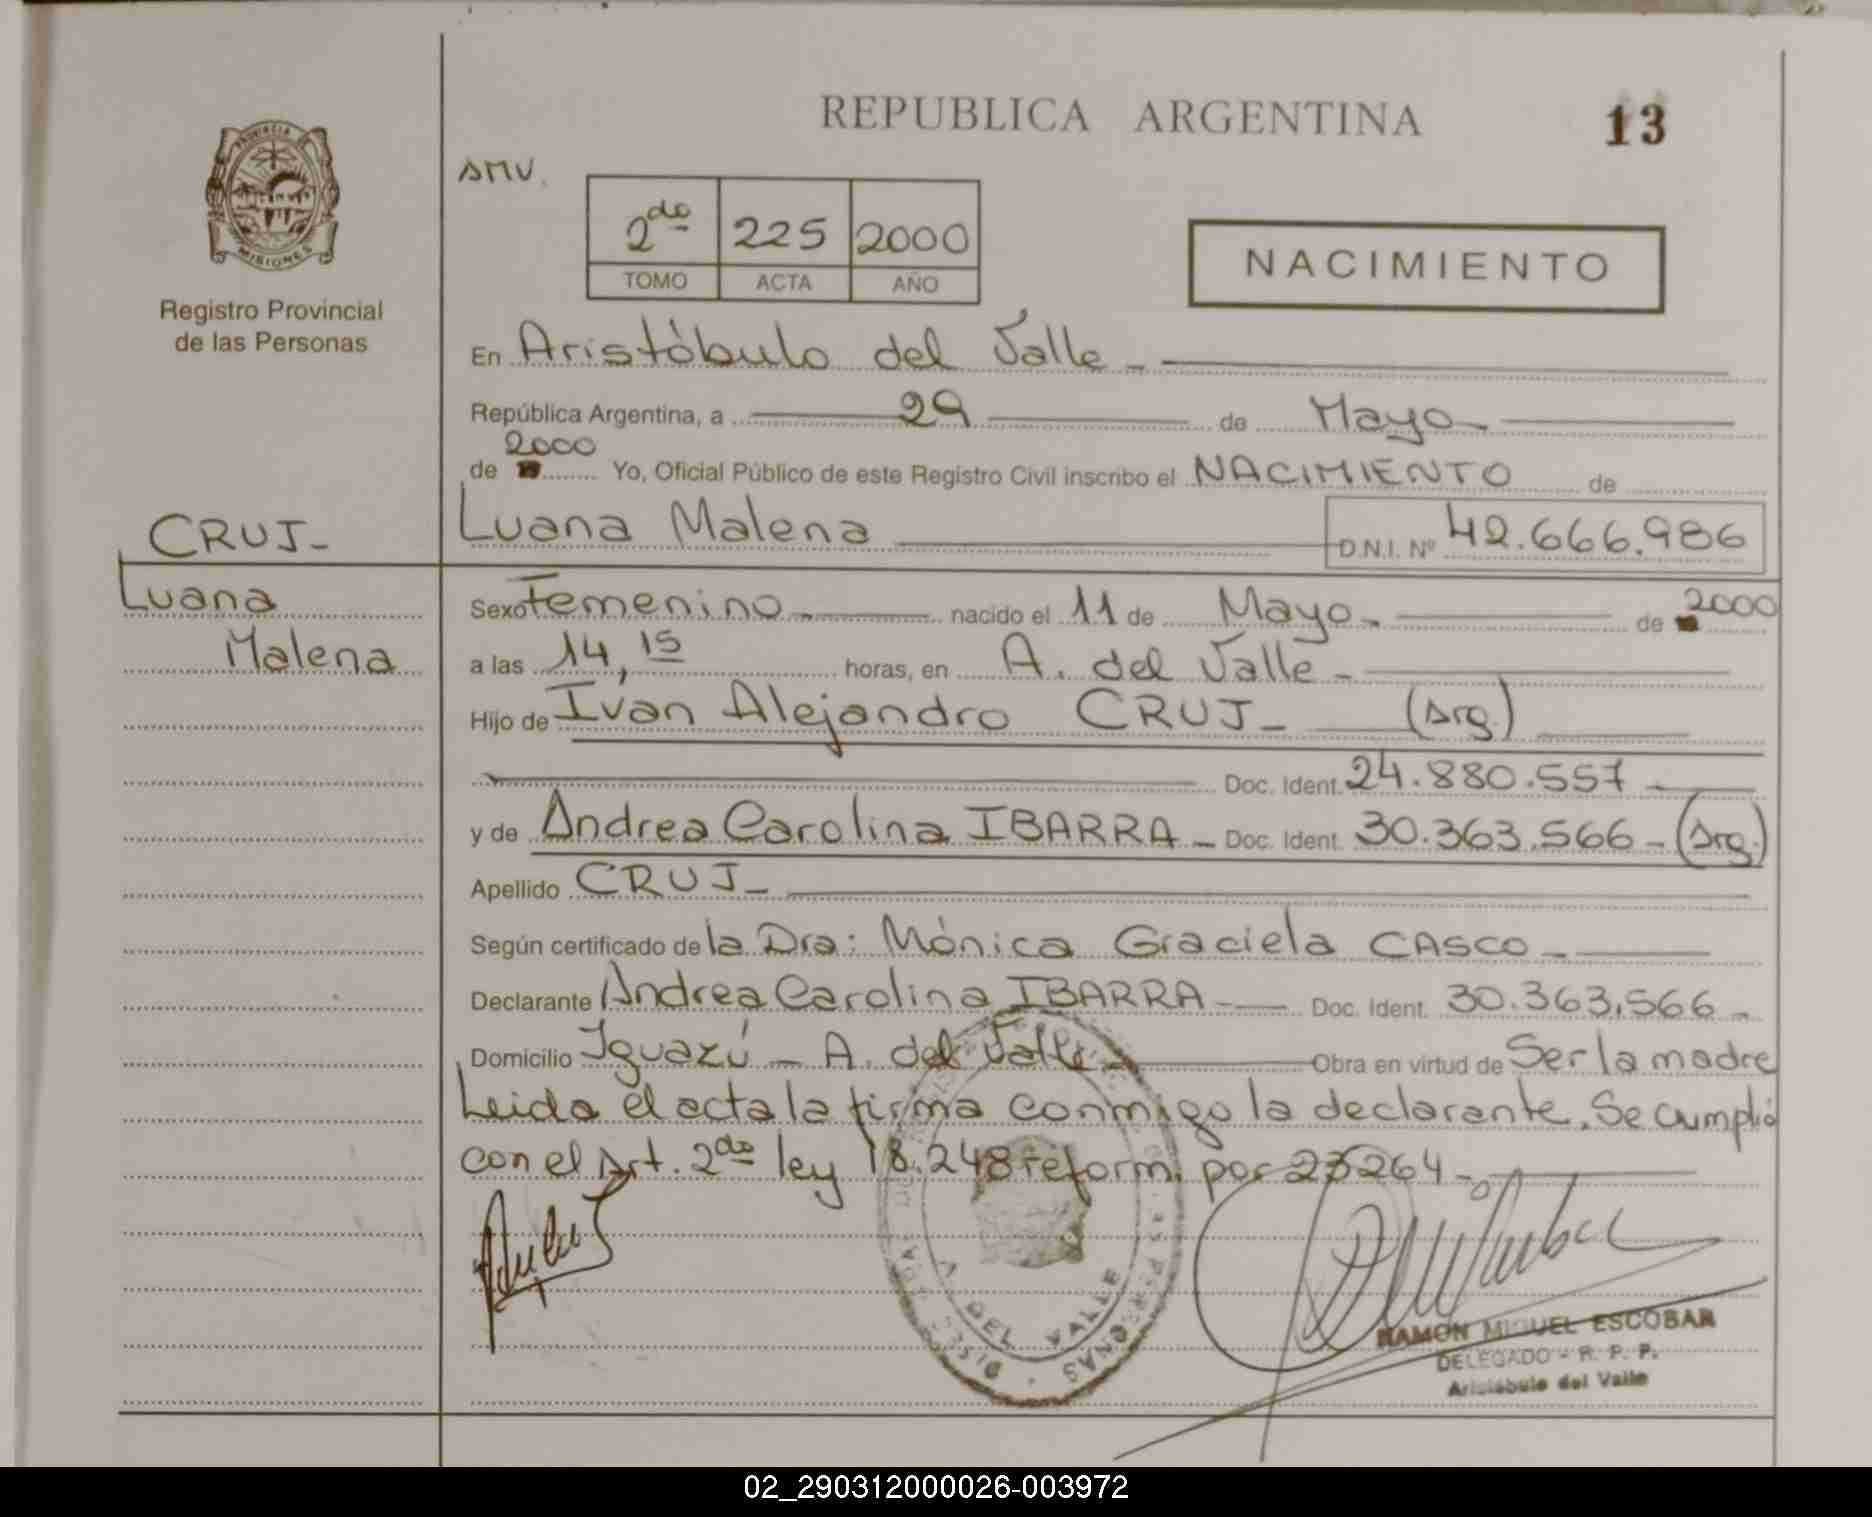 REPUBLICA ARGENTINA
13
PROVINCIA
MISIONES
Registro Provincial
de las Personas
AMV.
2do 225 2000
TOMO ACTA AÑO
NACIMIENTO
En Aristóbulo del Valle
República Argentina, a 29 de Mayo
de 2000 Yo, Oficial Público de este Registro Civil inscribo el NACIMIENTO de
Luana Malena D.N.I. Nº 42.666.986
CRUJ
Luana
Malena
Sexo Femenino nacido el 11 de Mayo de 2000
a las 14,15 horas, en A. del Valle
Hijo de Ivan Alejandro CRUJ (Arg.)
Doc. Ident. 24.880.557
y de Andrea Carolina IBARRA Doc. Ident. 30.363.566 (Arg.)
Apellido CRUJ
Según certificado de la Dra: Mónica Graciela CASCO
Declarante Andrea Carolina IBARRA Doc. Ident. 30.363.566
Domicilio Iguazú - A. del Valle Obra en virtud de Ser la madre
Leida el acta la firma conmigo la declarante. Se cumplió
con el Art. 2do ley 18.248 reform. por 23264
A. DEL VALLE
RAMON MIGUEL ESCOBAR
DELEGADO - R. P. P.
Aristóbulo del Valle
02_290312000026-003972